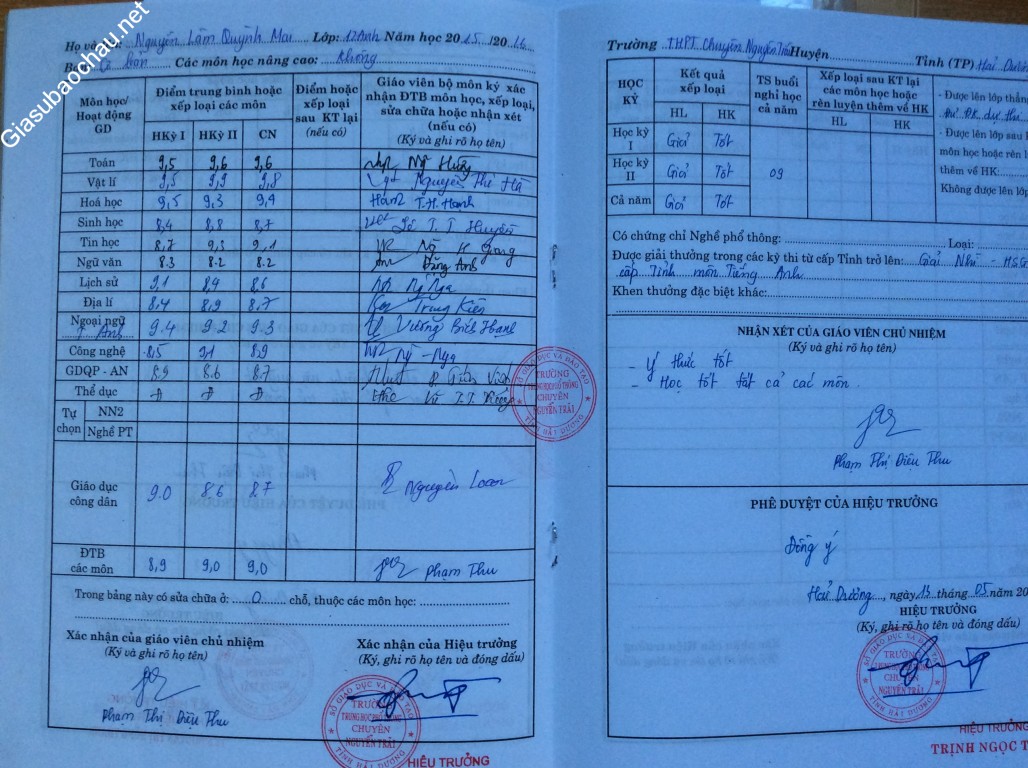 Giasubaochau.net
Họ và tên: Nguyễn Lâm Quỳnh Mai Lớp: 12 Anh Năm học 2015./2016
Ban: Cơ bản Các môn học nâng cao: Không
Môn học/ Hoạt động GD
Điểm trung bình hoặc xếp loại các môn
HKỳ I HKỳ II CN
Điểm hoặc xếp loại sau KT lại (nếu có)
Giáo viên bộ môn ký xác nhận ĐTB môn học, xếp loại, sửa chữa hoặc nhận xét (nếu có)
(Ký và ghi rõ họ tên)
Toán 9,5 9,6 9,6
Vật lí 9,5 9,9 9,8 Nguyễn Thị Hà
Hoá học 9,5 9,3 9,4 T.H. Hanh
Sinh học 8,4 8,8 8,7 T. T Huyền
Tin học 8,7 9,3 9,1 Giang
Ngữ văn 8.3 8.2 8.2 Đặng Anh
Lịch sử 9,1 8,4 8,6 Nga
Địa lí 8,4 8,9 8,7 Trung Kiên
Ngoại ngữ T. Anh 9.4 9.2 9.3 Vương Bích Hạnh
Công nghệ 8,5 9,1 8,9 Nga
GDQP - AN 8,9 8.6 8.7
Thể dục Đ Đ Đ
Tự chọn NN2
Nghề PT
Giáo dục công dân 9.0 8.6 8.7 Nguyễn Loan
ĐTB các môn 8,9 9,0 9,0 Phạm Thu
Trong bảng này có sửa chữa ở: 0 chỗ, thuộc các môn học:
Xác nhận của giáo viên chủ nhiệm
(Ký và ghi rõ họ tên)
Phạm Thị Diệu Thu
Xác nhận của Hiệu trưởng
(Ký, ghi rõ họ tên và đóng dấu)
SỞ GIÁO DỤC VÀ ĐÀO TẠO
TRƯỜNG
TRUNG HỌC PHỔ THÔNG
CHUYÊN
NGUYỄN TRÃI
TỈNH HẢI DƯƠNG
HIỆU TRƯỞNG
Trường THPT Chuyên Nguyễn Trãi Huyện Tỉnh (TP) Hải Dương
HỌC KỲ
Kết quả xếp loại
HL HK
TS buổi nghỉ học cả năm
Xếp loại sau KT lại các môn học hoặc rèn luyện thêm về HK
HL HK
Học kỳ I Giỏi Tốt
Học kỳ II Giỏi Tốt 09
Cả năm Giỏi Tốt
- Được lên lớp thẳn
Đủ ĐK dự thi
- Được lên lớp sau
môn học hoặc rèn l
thêm về HK:
Không được lên lớp
Có chứng chỉ Nghề phổ thông: Loại:
Được giải thưởng trong các kỳ thi từ cấp Tỉnh trở lên: Giải Nhì - HSG
cấp Tỉnh môn Tiếng Anh
Khen thưởng đặc biệt khác:
NHẬN XÉT CỦA GIÁO VIÊN CHỦ NHIỆM
(Ký và ghi rõ họ tên)
- Ý thức tốt
- Học tốt tất cả các môn.
Phạm Thị Diệu Thu
PHÊ DUYỆT CỦA HIỆU TRƯỞNG
Đồng ý
Hải Dương, ngày 13 tháng 05 năm 20
HIỆU TRƯỞNG
(Ký, ghi rõ họ tên và đóng dấu)
HIỆU TRƯỞNG
TRỊNH NGỌC T